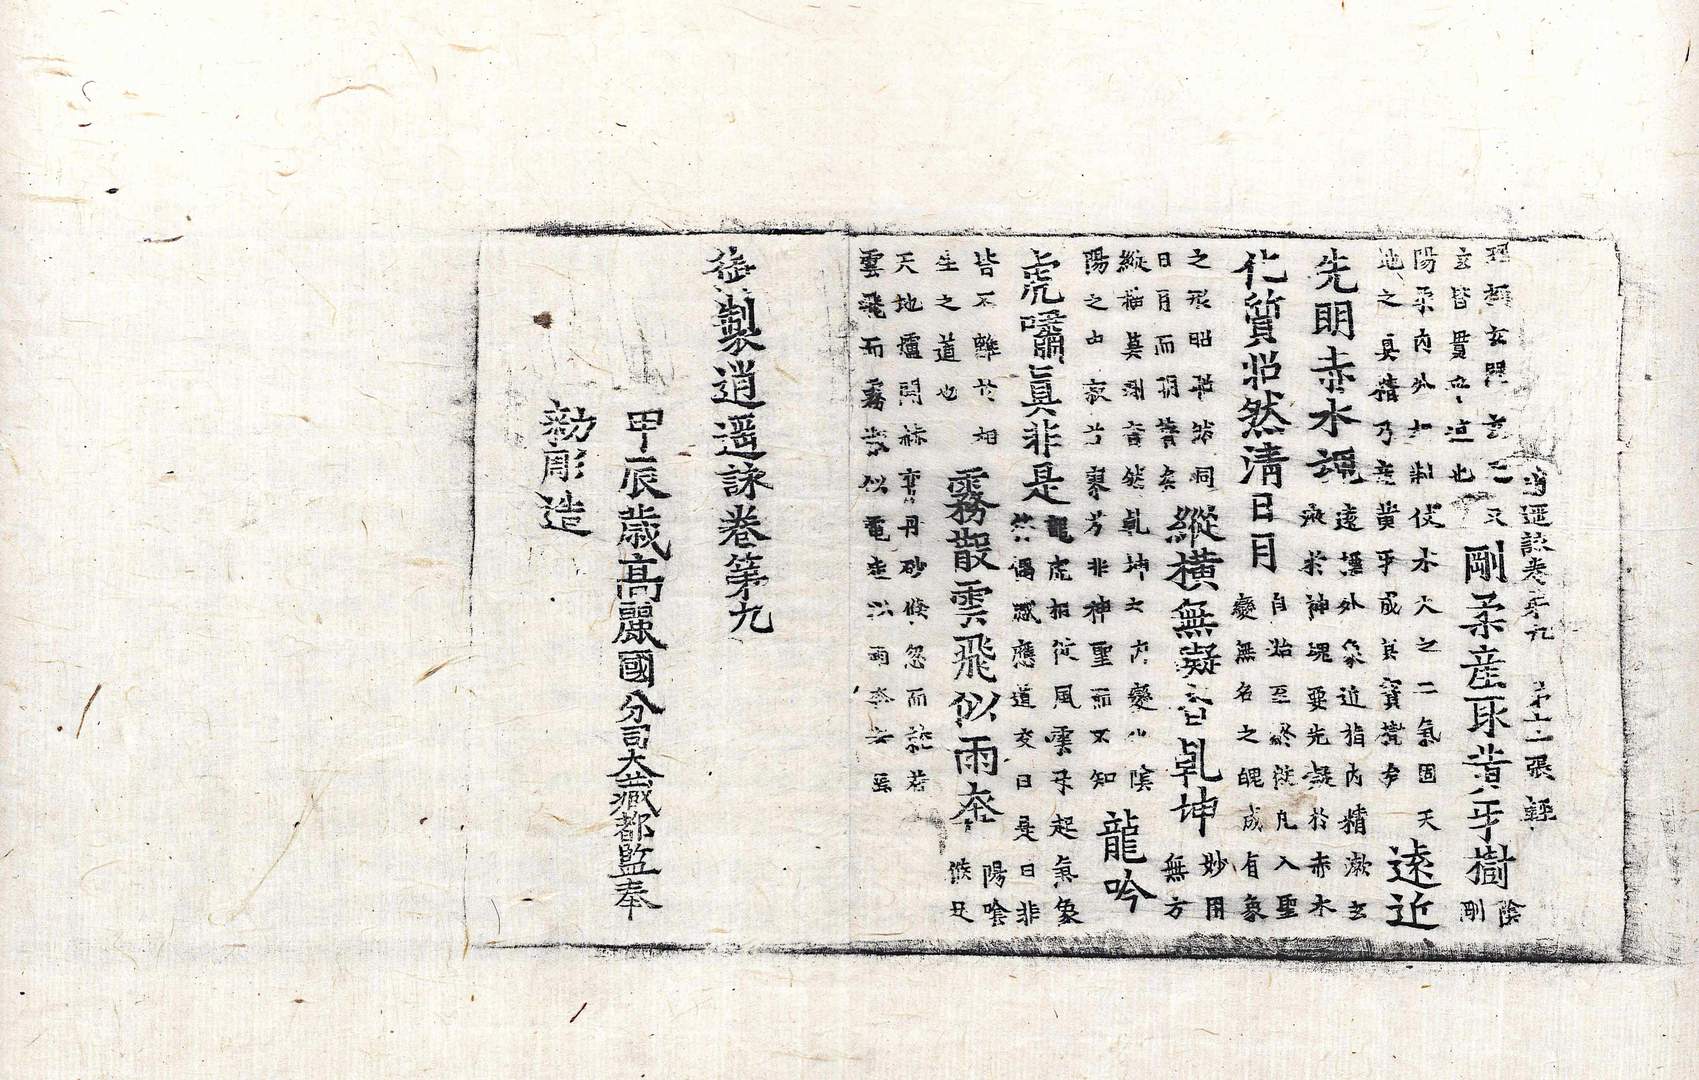 逍遥詠卷第九 第十二張 輕
理極玄門玄之又
玄皆貫 道也
剛柔産取黄牙樹
陰
剛
陽柔内外如制伏水火之二氣固天
地之真精乃産黄乎成其寶樹者
遠近
先明赤水魂
遠 外象近指内精漱玄
液於神魂要先凝於赤水
化質怊然清日月
自始至終從凡入聖
變無名之魄成有象
之形昭 然洞
日月而明著矣
縱橫無礙合乹坤
妙用
無方
縱橫莫測 然乹坤大内變化陰
陽之由寂兮寥兮非神聖而不知
龍吟
虎嘯眞非是
龍虎相從風雲乎起氣象
然偶感應道交曰是曰非
皆不離於相
生之道也
霧散雲飛似雨奔
陽喰
候足
天地爐開赫弈丹砂倏忽而 若
雲飛而霧散似電走以雨奔去焉
御製逍遥詠卷第九
甲辰歲高麗國分司大藏都監奉
勑彫造